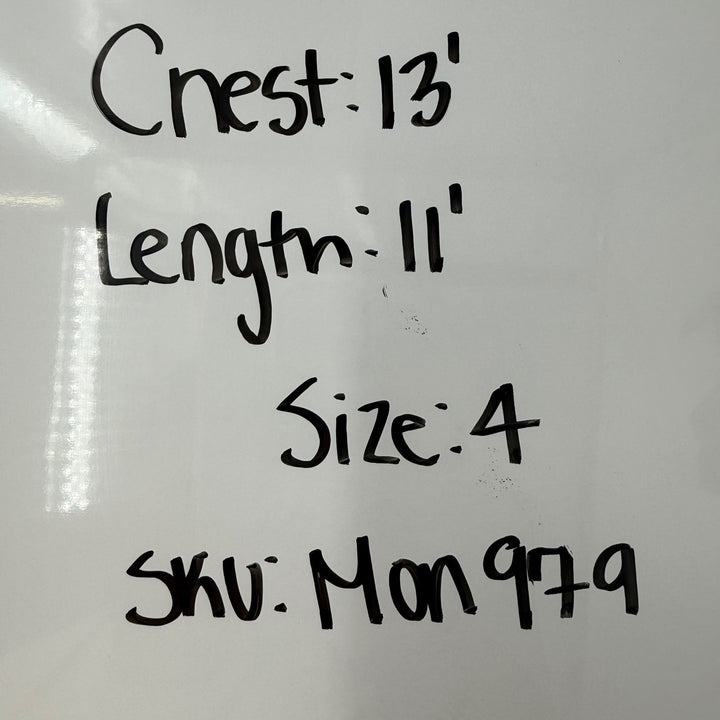 Chest: 13'
Length: 11'
Size: 4
SKU: Mon 979